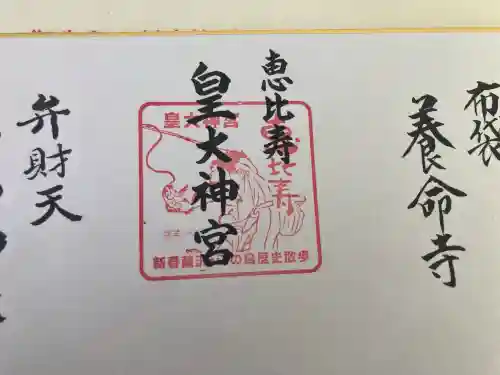 布袋
養命寺
恵比寿
皇大神宮
皇大神宮
比寿
新春藤沢
の鳥歴史散歩
弁財天